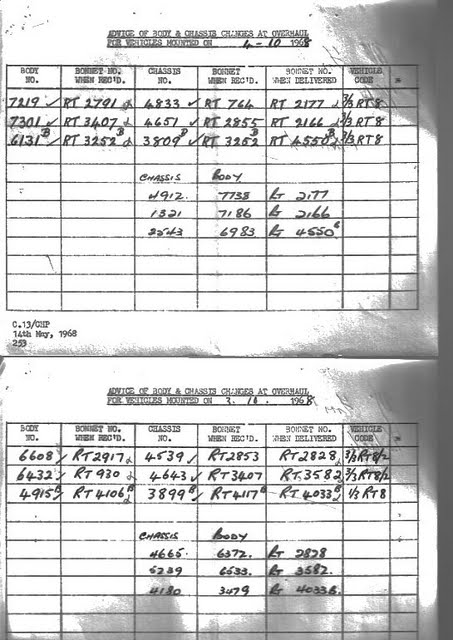 ADVICE OF BODY & CHASSIS CHANGES AT OVERHAUL
FOR VEHICLES MOUNTED ON 4-10 1968
BODY NO. BONNET NO. WHEN REC'D. CHASSIS NO. BONNET WHEN REC'D. BONNET NO. WHEN DELIVERED VEHICLE CODE
7219 ✓ RT 2791 4833 ✓ RT 764 RT 2177 3/3 RT8
7301 ✓ RT 3407 4651 ✓ RT 2855 RT 2166 3/3 RT8
6131 B ✓ RT 3252 B 3809 B ✓ RT 3252 B RT 4550 B 3/3 RT8
CHASSIS BODY
4912. 7738 RT 2177
1321 7186 RT 2166
2543 6983 RT 4550 B
C.13/GHP
14th May, 1968
253
ADVICE OF BODY & CHASSIS CHANGES AT OVERHAUL
FOR VEHICLES MOUNTED ON 3. 10. 1968
BODY NO. BONNET NO. WHEN REC'D. CHASSIS NO. BONNET WHEN REC'D. BONNET NO. WHEN DELIVERED VEHICLE CODE
6608 ✓ RT2917 4539 ✓ RT2853 RT2828 3/3 RT8/2
6432 ✓ RT 930 4643 ✓ RT3407 RT.3582 3/3 RT8/2
4915 B ✓ RT4106 B 3899 B ✓ RT4117 B RT4033 B 1/3 RT8
CHASSIS BODY
4665. 6372. RT 2828
5239 6533. RT 3582.
4180 3479 RT 4033B.